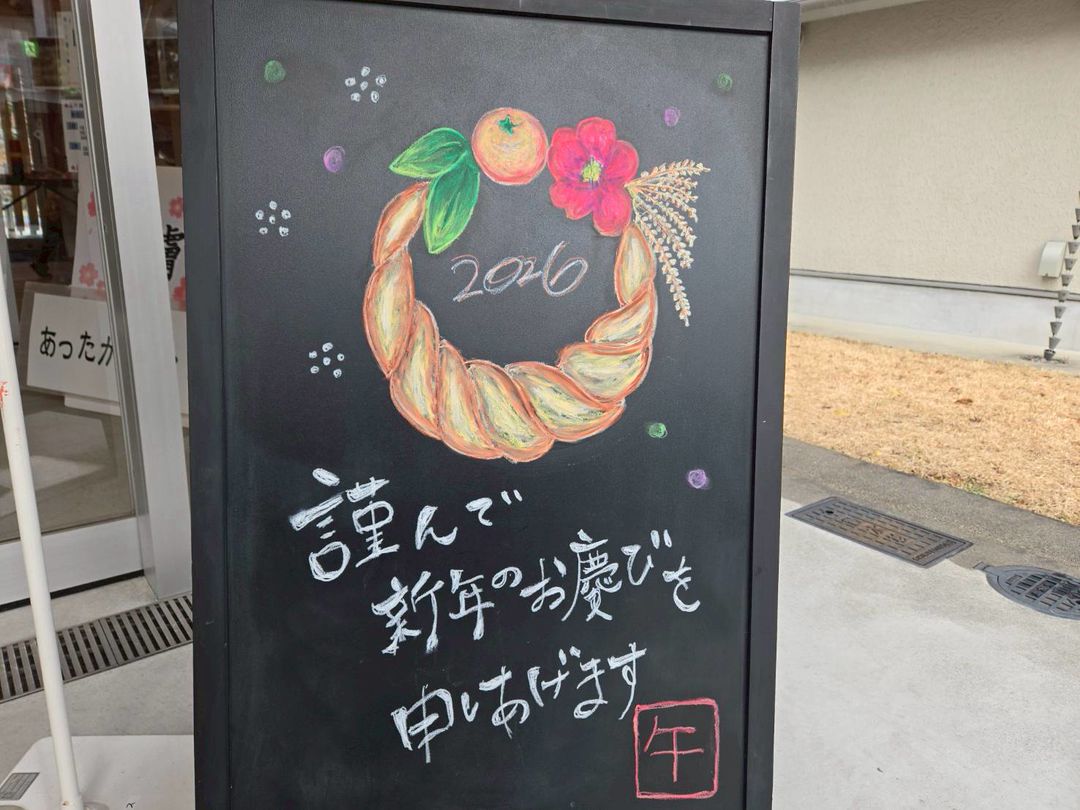 2026
謹んで
新年のお慶びを
申しあげます
午
あったか